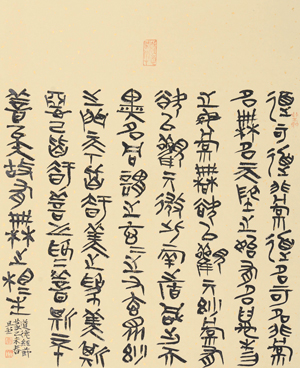 道可非常道名可名非常
名無名天地之始有名萬物
之母常無欲以觀其妙常
欲以觀其徼此兩者同出
異名同謂之玄之又玄眾妙
之門天下皆知美之為美斯
惡已皆知善之為善斯不
善矣故有無之相生
道德經節